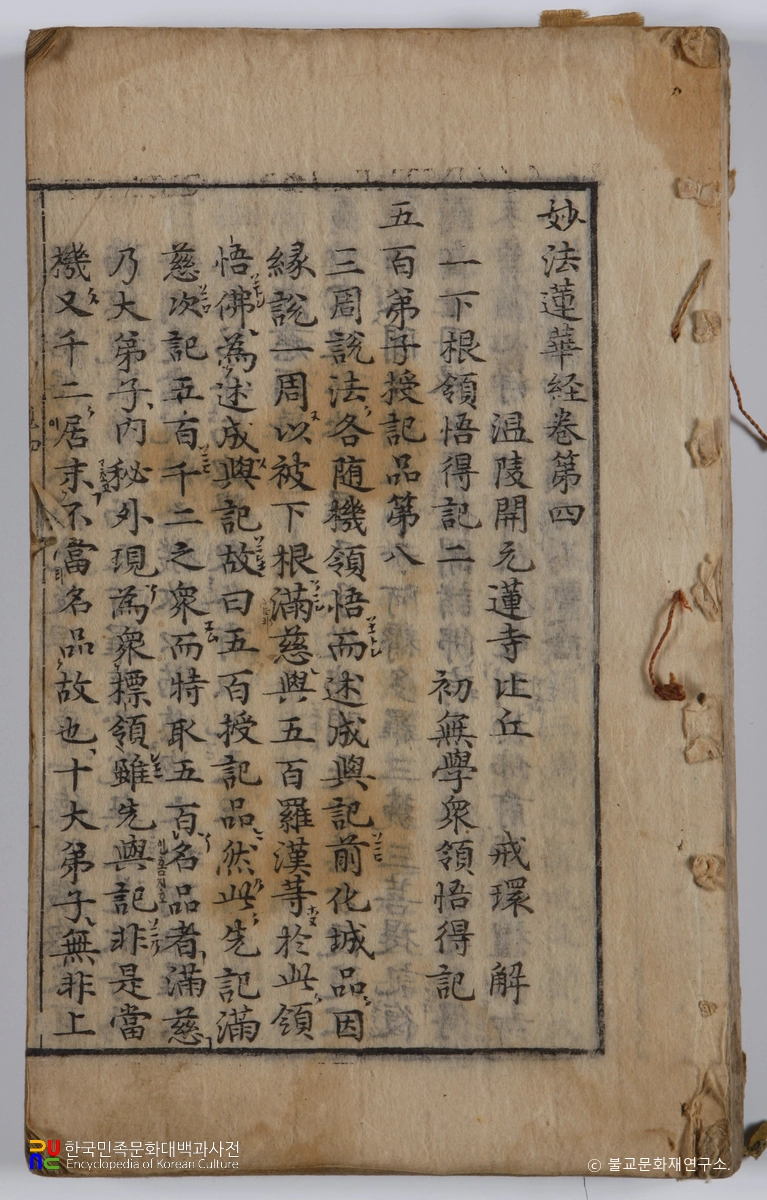 妙法蓮華経卷第四
温陵開元蓮寺比丘 戒環 解
一下根領悟得記二 初無學衆領悟得記
五百弟子授記品第八
三周說法各随機領悟而述成與記前化城品因
縁說一周以被下根滿慈與五百羅漢䓁於此領
悟佛為述成與記故曰五百授記品然此先記滿
慈次記五百千二之衆而特取五百名品者滿慈
乃大弟子內秘外現為衆標領雖先與記非是當
機又千二居末不當名品故也十大弟子無非上
한국민족문화대백과사전
Encyclopedia of Korean Culture
© 불교문화재연구소.